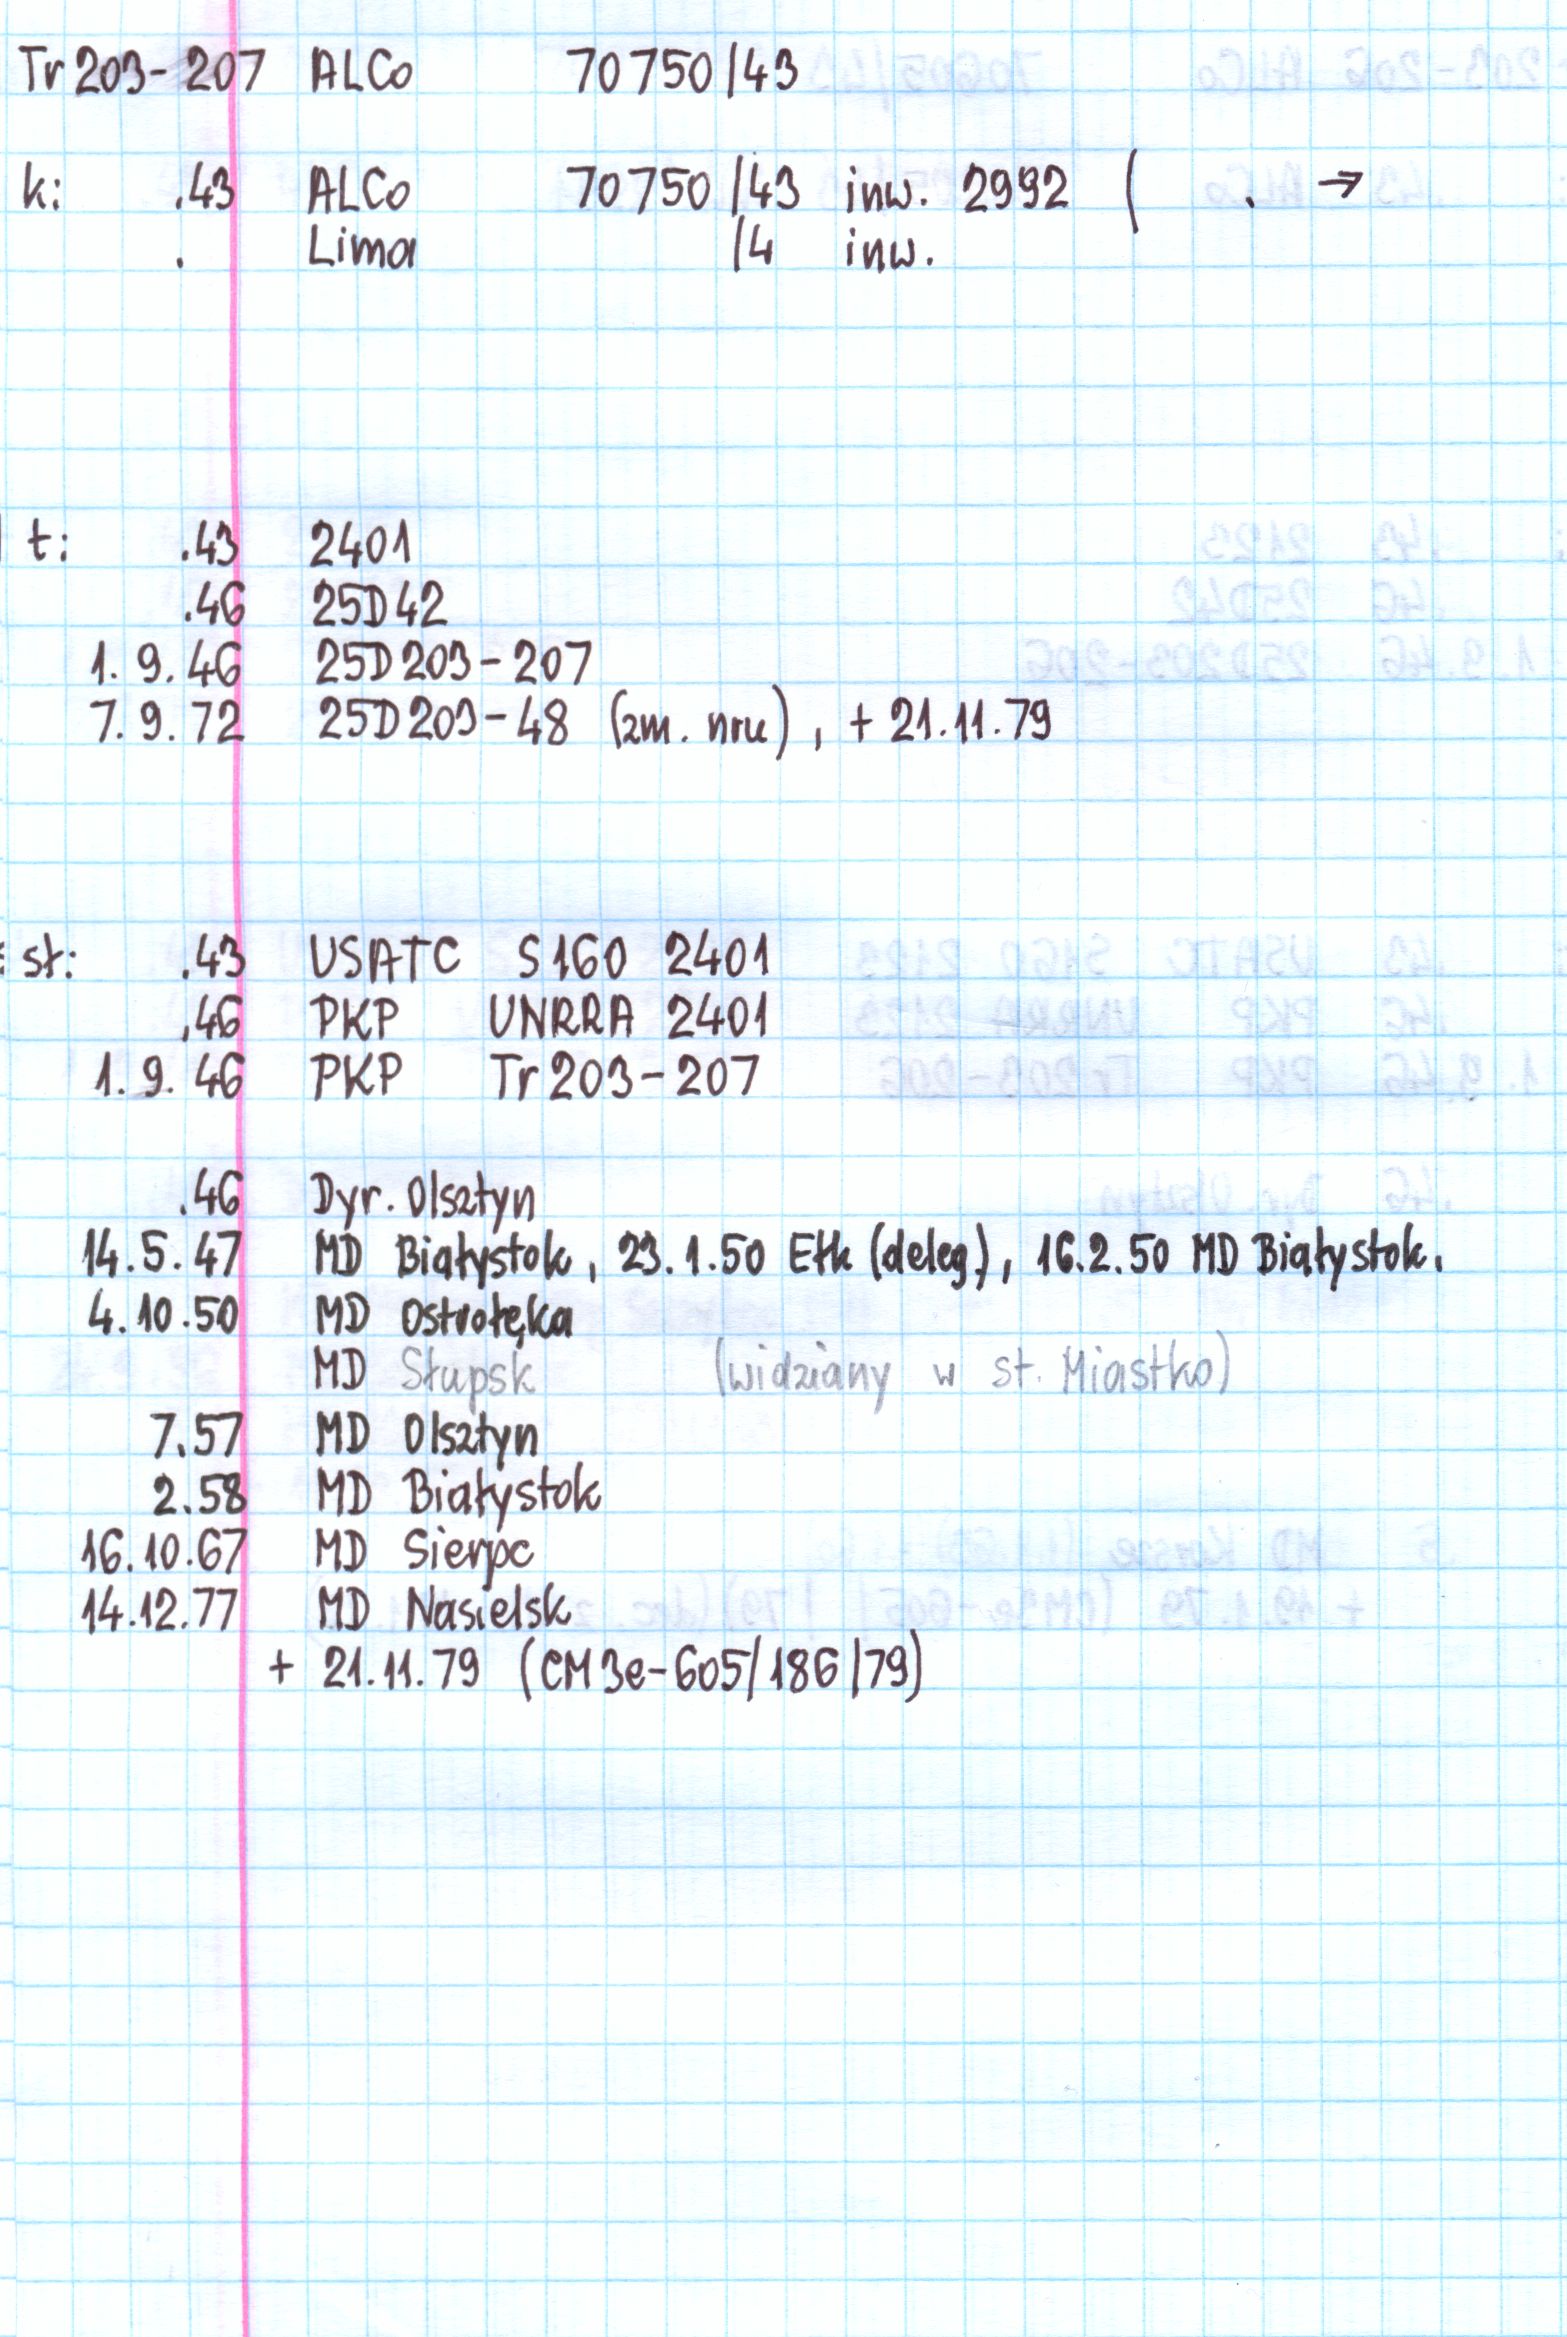 Tr 203-207 ALCo 70750/43
k: .43 ALCo 70750/43 inw. 2992 ( . →
. Lima /4 inw.
t: .43 2401
.46 25D42
1.9.46 25D203-207
7.9.72 25D203-48 (zm. nru), + 21.11.79
st: .43 USATC S160 2401
.46 PKP UNRRA 2401
1.9.46 PKP Tr203-207
.46 Dyr. Olsztyn
14.5.47 MD Białystok, 23.1.50 Ełk (deleg.), 16.2.50 MD Białystok.
4.10.50 MD Ostrołęka
MD Słupsk (widziany w st. Miastko)
7.57 MD Olsztyn
2.58 MD Białystok
16.10.67 MD Sierpc
14.12.77 MD Nasielsk
+ 21.11.79 (CM3e-605/186/79)